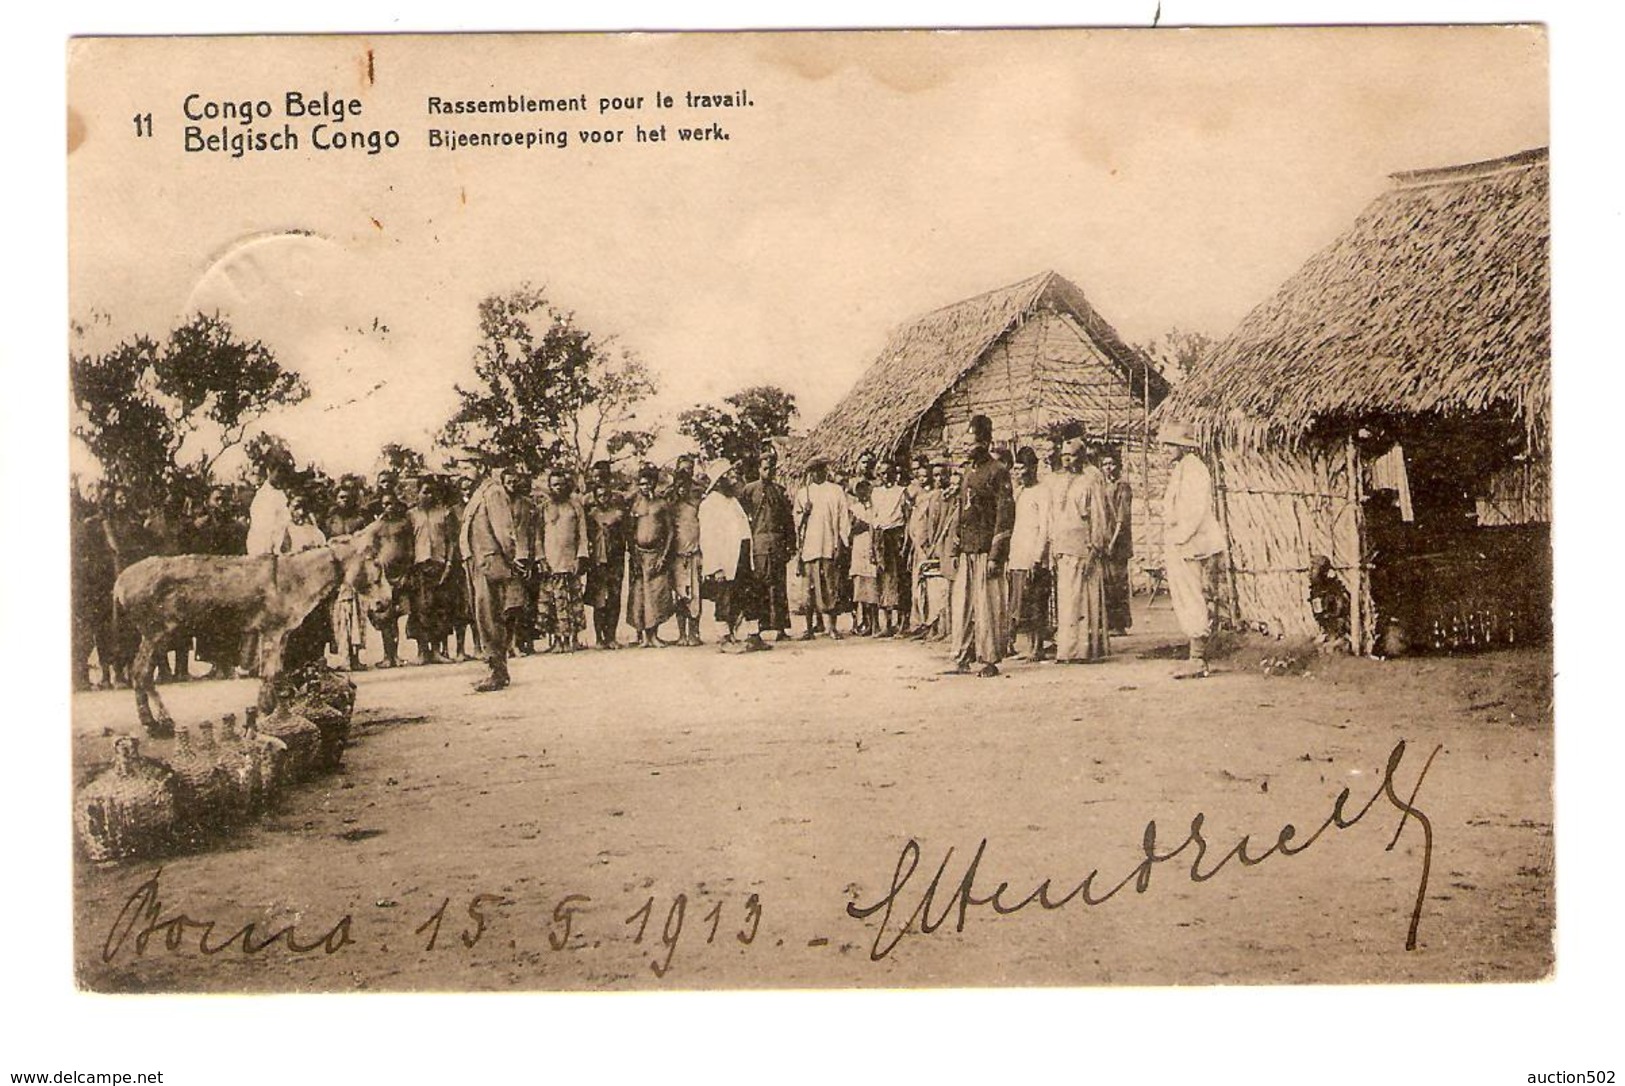 11
Congo Belge
Belgisch Congo
Rassemblement pour le travail.
Bijeenroeping voor het werk.
Boma. 15.5.1913. -
www.delcampe.net
auction502